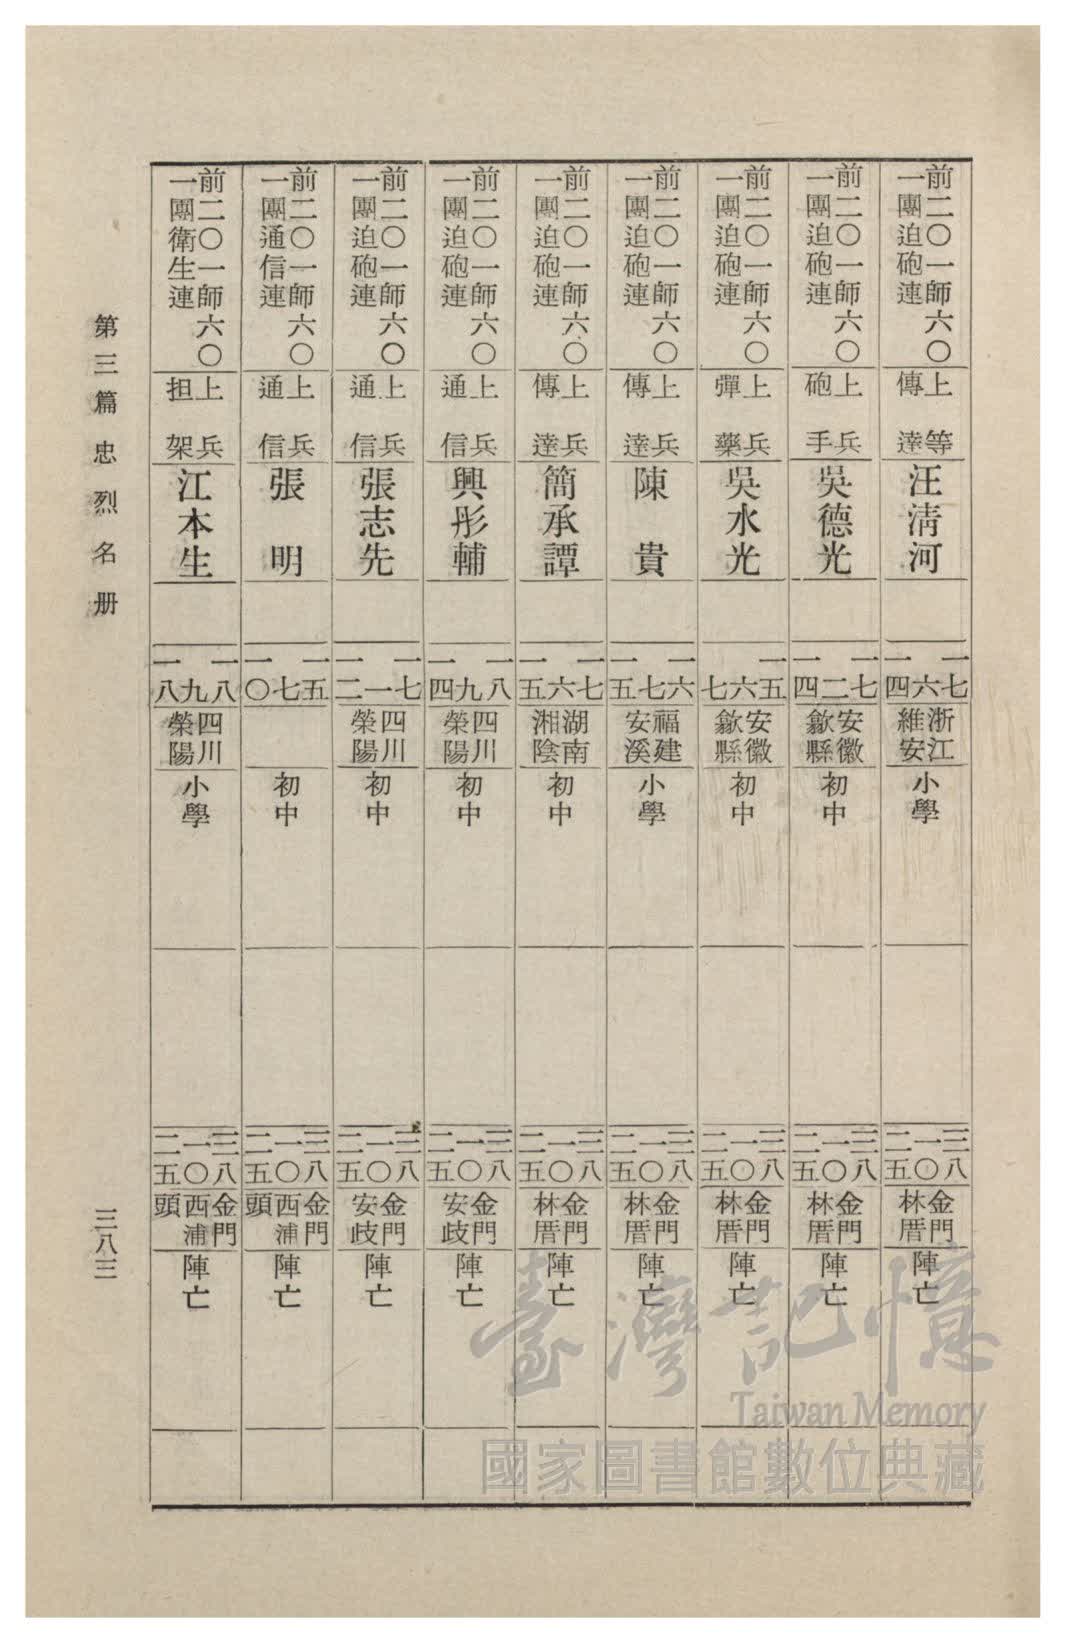 前二〇一師六〇
一團迫砲連
上等
傳達
汪淸河
一七
一六
四
浙江
維安
小學
三八
一〇
二五
金門
林厝
陣亡
前二〇一師六〇
一團迫砲連
上兵
砲手
吳德光
一七
二
一四
安徽
歙縣
初中
三八
一〇
二五
金門
林厝
陣亡
前二〇一師六〇
一團迫砲連
上兵
彈藥
吳水光
一五
六
七
安徽
歙縣
初中
三八
一〇
二五
金門
林厝
陣亡
前二〇一師六〇
一團迫砲連
上兵
傳達
陳貴
一六
七
一五
福建
安溪
小學
三八
一〇
二五
金門
林厝
陣亡
前二〇一師六〇
一團迫砲連
上兵
傳達
簡承譚
一七
六
一五
湖南
湘陰
初中
三八
一〇
二五
金門
林厝
陣亡
前二〇一師六〇
一團迫砲連
上兵
通信
興彤輔
一八
九
一四
四川
榮陽
初中
三八
一〇
二五
金門
安歧
陣亡
前二〇一師六〇
一團迫砲連
上兵
通信
張志先
一七
一
一二
四川
榮陽
初中
三八
一〇
二五
金門
安歧
陣亡
前二〇一師六〇
一團通信連
上兵
通信
張明
一五
七
一〇
初中
三八
一〇
二五
金門
西浦
頭
陣亡
前二〇一師六〇
一團衛生連
上兵
担架
江本生
一八
九
一八
四川
榮陽
小學
三八
一〇
二五
金門
西浦
頭
陣亡
第三篇 忠烈名册
三八三
臺灣記憶
Taiwan Memory
國家圖書館數位典藏